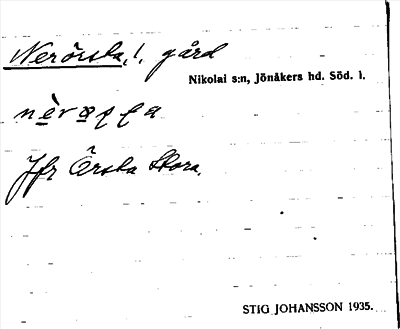 Nerörsta, l. gård
Nikolai s:n, Jönåkers hd. Söd. l.
Jfr Örsta Stora.
STIG JOHANSSON 1935.